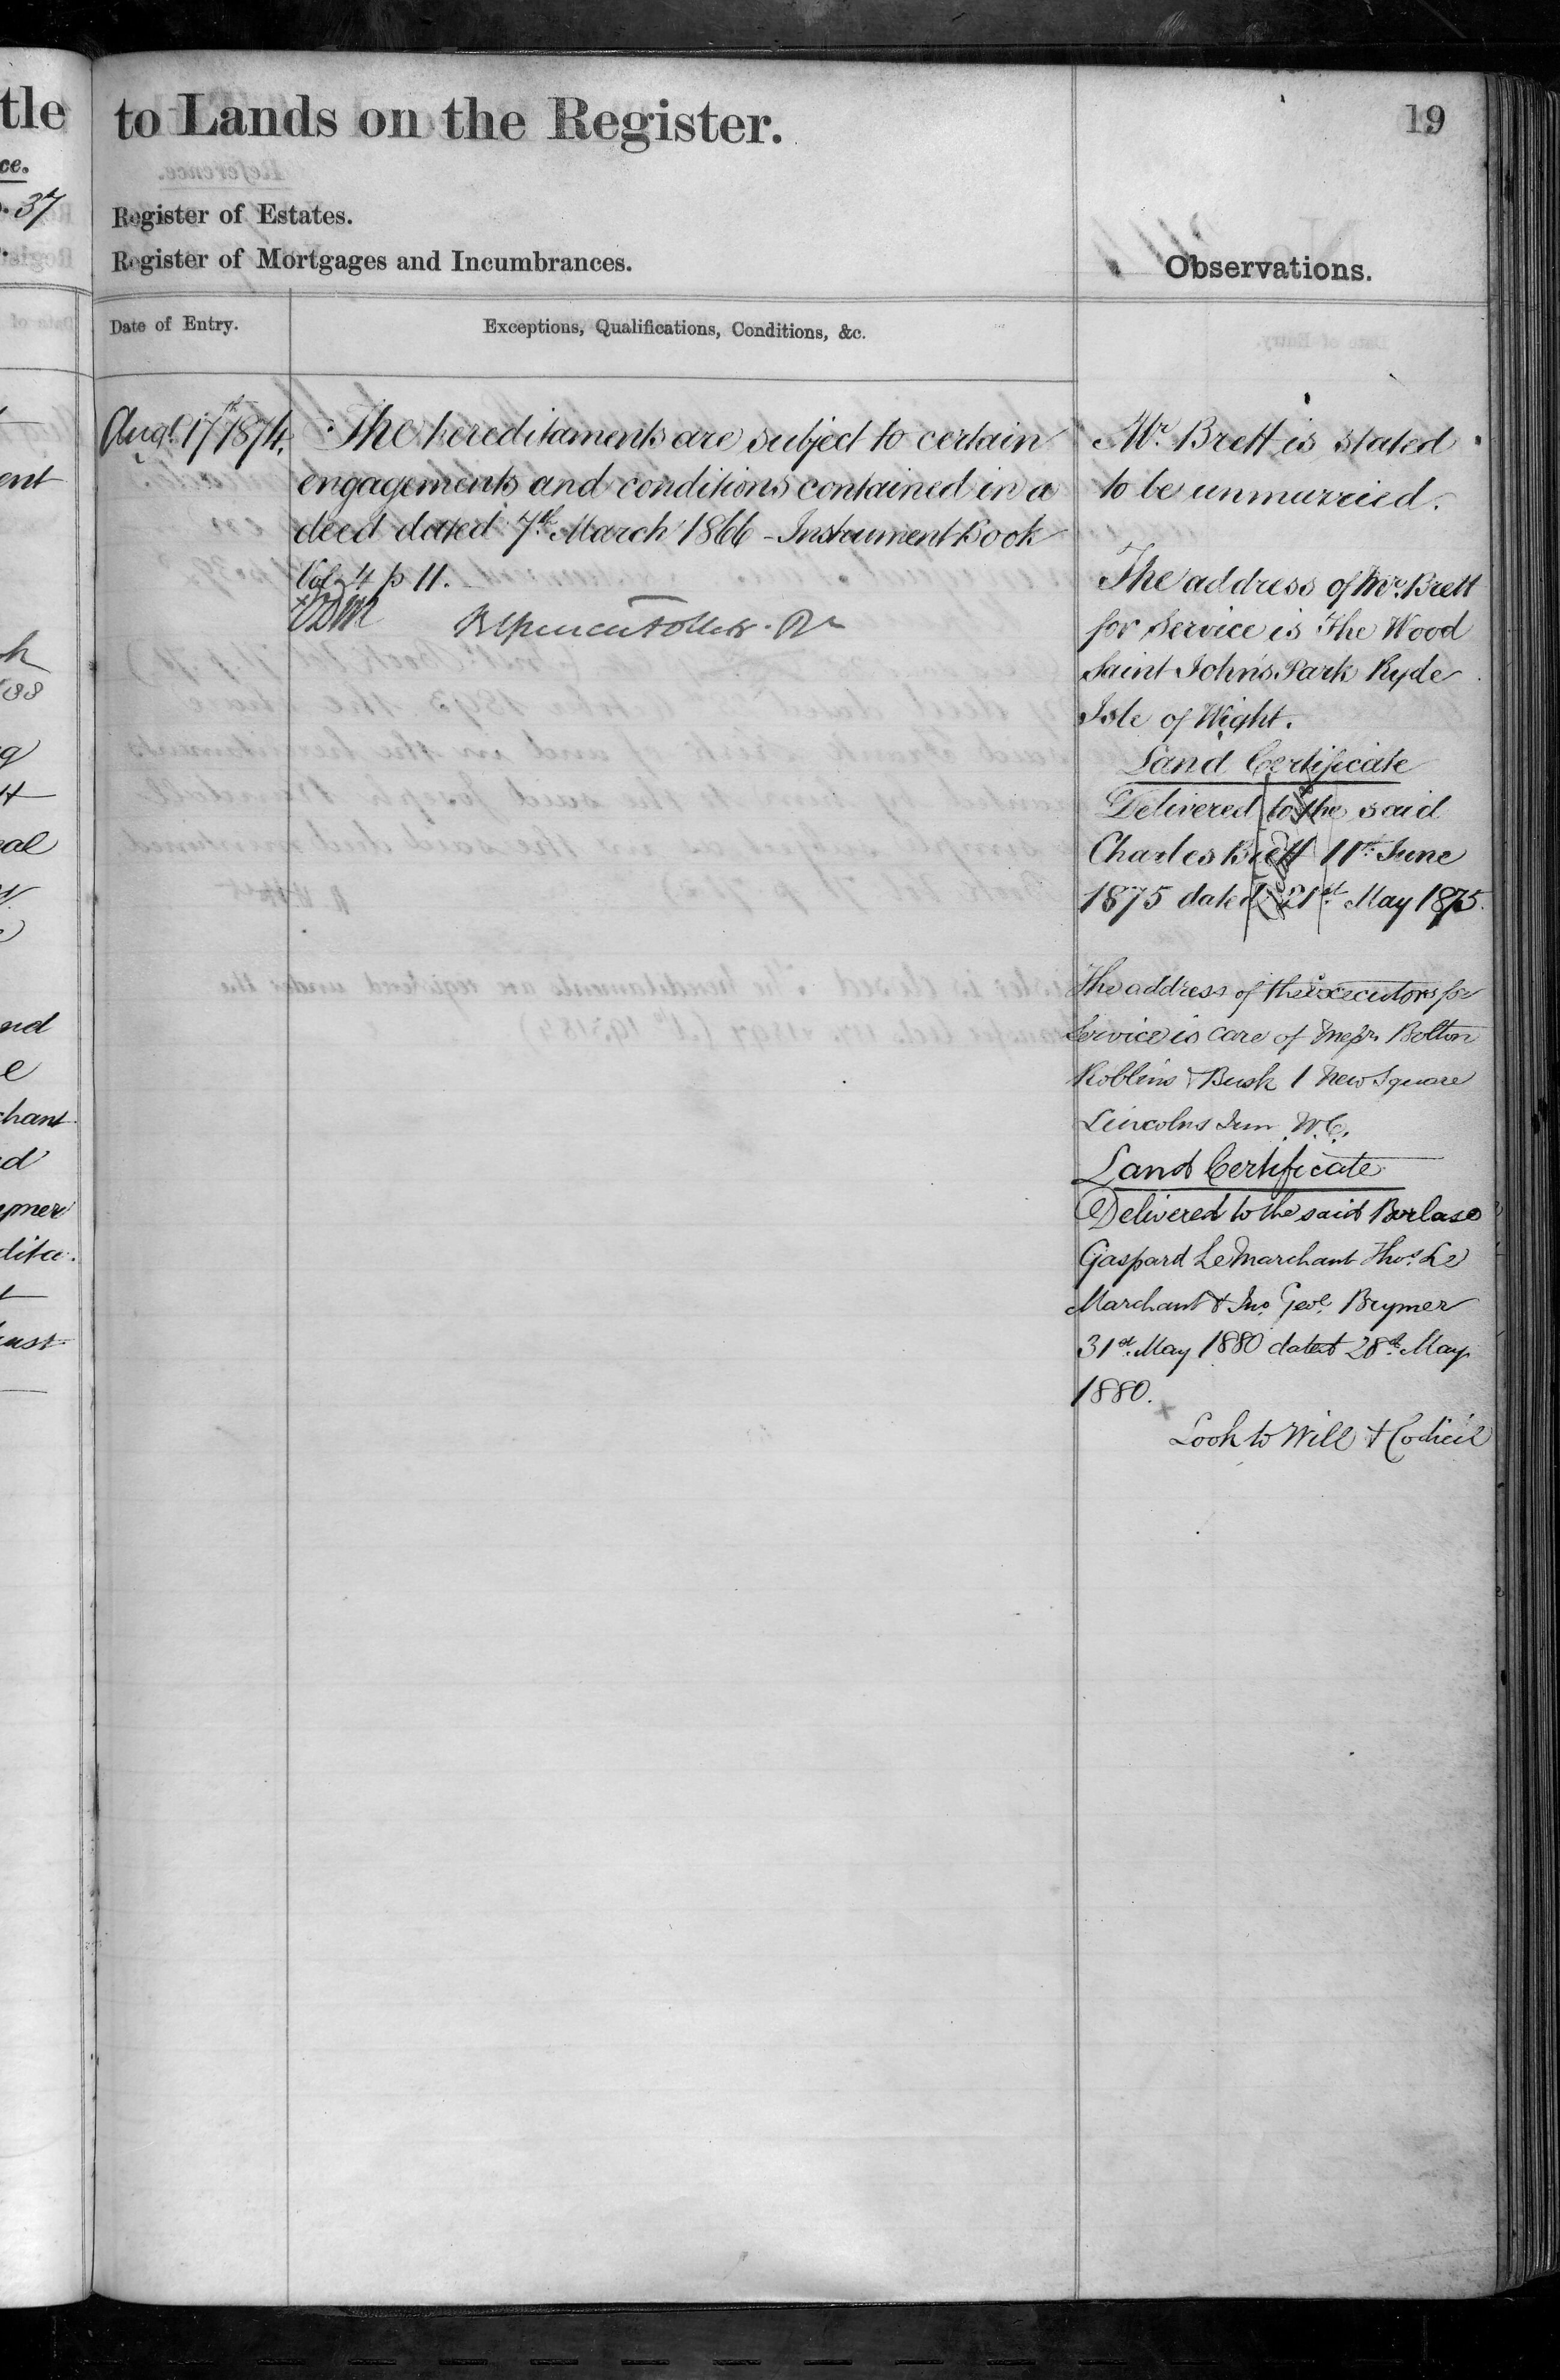 tle
to Lands on the Register.
19
ce.
37
Register of Estates.
Register of Mortgages and Incumbrances.
Observations.
Date of Entry.
Exceptions, Qualifications, Conditions, &c.
Augt. 17th 1874.
The hereditaments are subject to certain
engagements and conditions contained in a
deed dated 7th March 1866 - Instrument Book
Vol 4 p 11.
Mr. Brett is stated
to be unmarried.
The address of Mr. Brett
for service is The Wood
Saint John's Park Ryde
Isle of Wight.
Land Certificate
Delivered to the said
Charles Brett 11th June
1875 dated 21st May 1875.
The address of the executors for
Service is care of Messrs Bolton
Robbins & Busk 1 New Square
Lincolns Inn W.C.
Land Certificate
Delivered to the said Borlase
Gaspard Le Marchant Thos. Le
Marchant & Jno. Geo. Brymer
31st May 1880 dated 28th May
1880.
Look to Will & Codicil
ent
eal
nd
e
chant
ed
ymer
dita